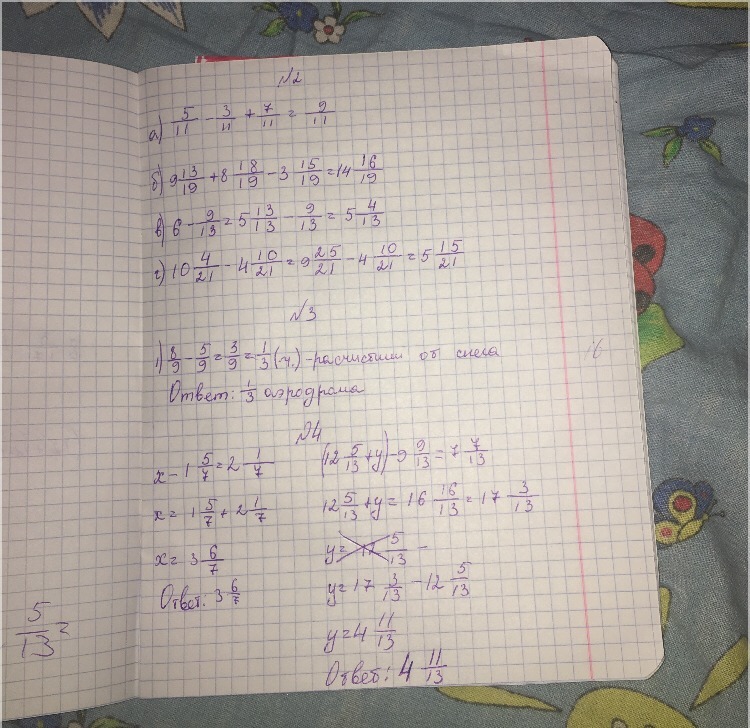 №2
а) 5/11 - 3/11 + 7/11 = 9/11
б) 9 13/19 + 8 18/19 - 3 15/19 = 14 16/19
в) 6 - 9/13 = 5 13/13 - 9/13 = 5 4/13
г) 10 4/21 - 4 10/21 = 9 25/21 - 4 10/21 = 5 15/21
№3
1) 8/9 - 5/9 = 3/9 = 1/3 (ч.) - расчистили от снега
Ответ: 1/3 аэродрома
16
№4
x - 1 5/7 = 2 1/7
x = 1 5/7 + 2 1/7
x = 3 6/7
Ответ: 3 6/7
(12 5/13 + y) - 9 9/13 = 7 7/13
12 5/13 + y = 16 16/13 = 17 3/13
y = 12 5/13 -
y = 17 3/13 - 12 5/13
y = 4 11/13
Ответ: 4 11/13
5/13 =